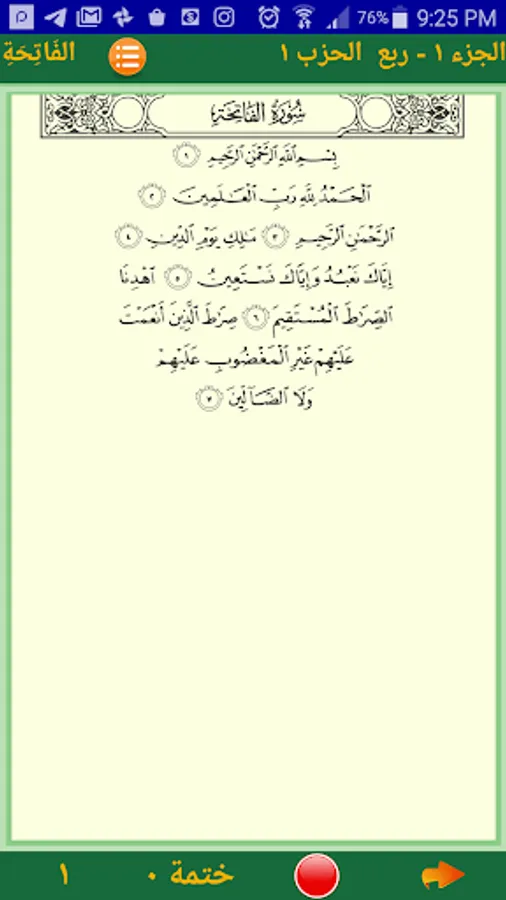 76% 9:25 PM
الجزء ١ - ربع الحزب ١ الفَاتِحَةِ
سُورَةُ الفَاتِحَةِ
بِسْمِ ٱللَّهِ ٱلرَّحْمَٰنِ ٱلرَّحِيمِ ١
ٱلْحَمْدُ لِلَّهِ رَبِّ ٱلْعَٰلَمِينَ ٢
ٱلرَّحْمَٰنِ ٱلرَّحِيمِ ٣ مَٰلِكِ يَوْمِ ٱلدِّينِ ٤
إِيَّاكَ نَعْبُدُ وَإِيَّاكَ نَسْتَعِينُ ٥ ٱهْدِنَا
ٱلصِّرَٰطَ ٱلْمُسْتَقِيمَ ٦ صِرَٰطَ ٱلَّذِينَ أَنْعَمْتَ
عَلَيْهِمْ غَيْرِ ٱلْمَغْضُوبِ عَلَيْهِمْ
وَلَا ٱلضَّآلِّينَ ٧
ختمة ٠ ١